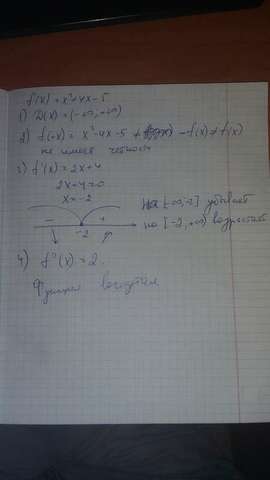 f(x) = x²+4x-5
1) D(x) = (-∞, +∞)
2) f(-x) = x²-4x-5 ≠ -f(x) ≠ f(x)
не имеет четности
3) f'(x) = 2x+4
2x+4=0
x=-2
на (-∞,-2] убывает
- + на [-2,+∞) возрастает
-2
4) f''(x) = 2
Функция вогнутая